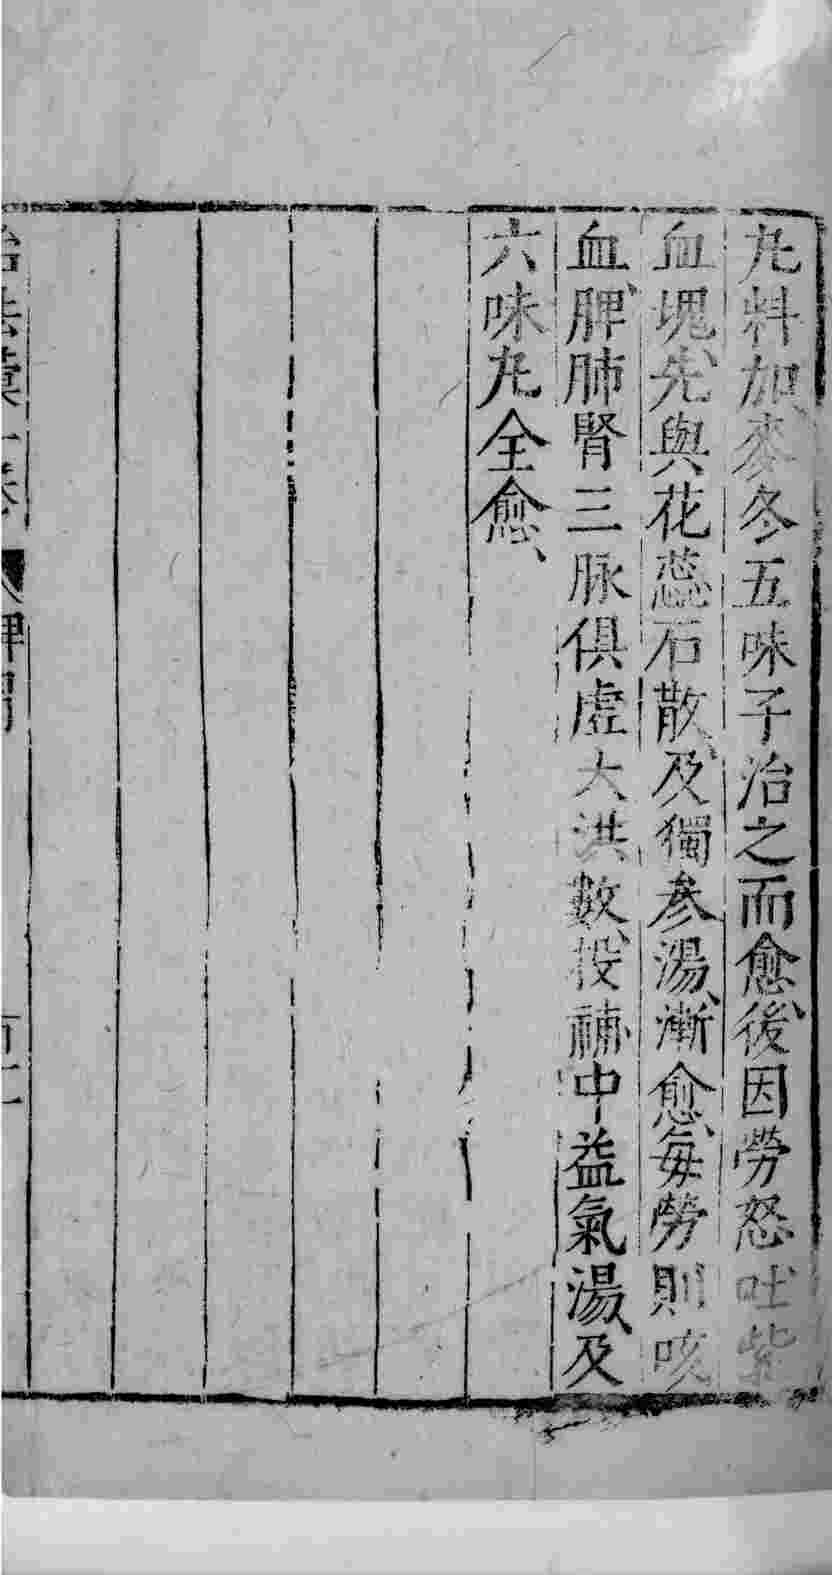 丸料加、麥冬五味子治之而愈、後因勞怒吐紫
血塊、先與花蕊石散、及獨參湯、漸愈、每勞則咳
血、脾肺腎三脉俱虛、大洪數、投補中益氣湯、及
六味丸全愈、